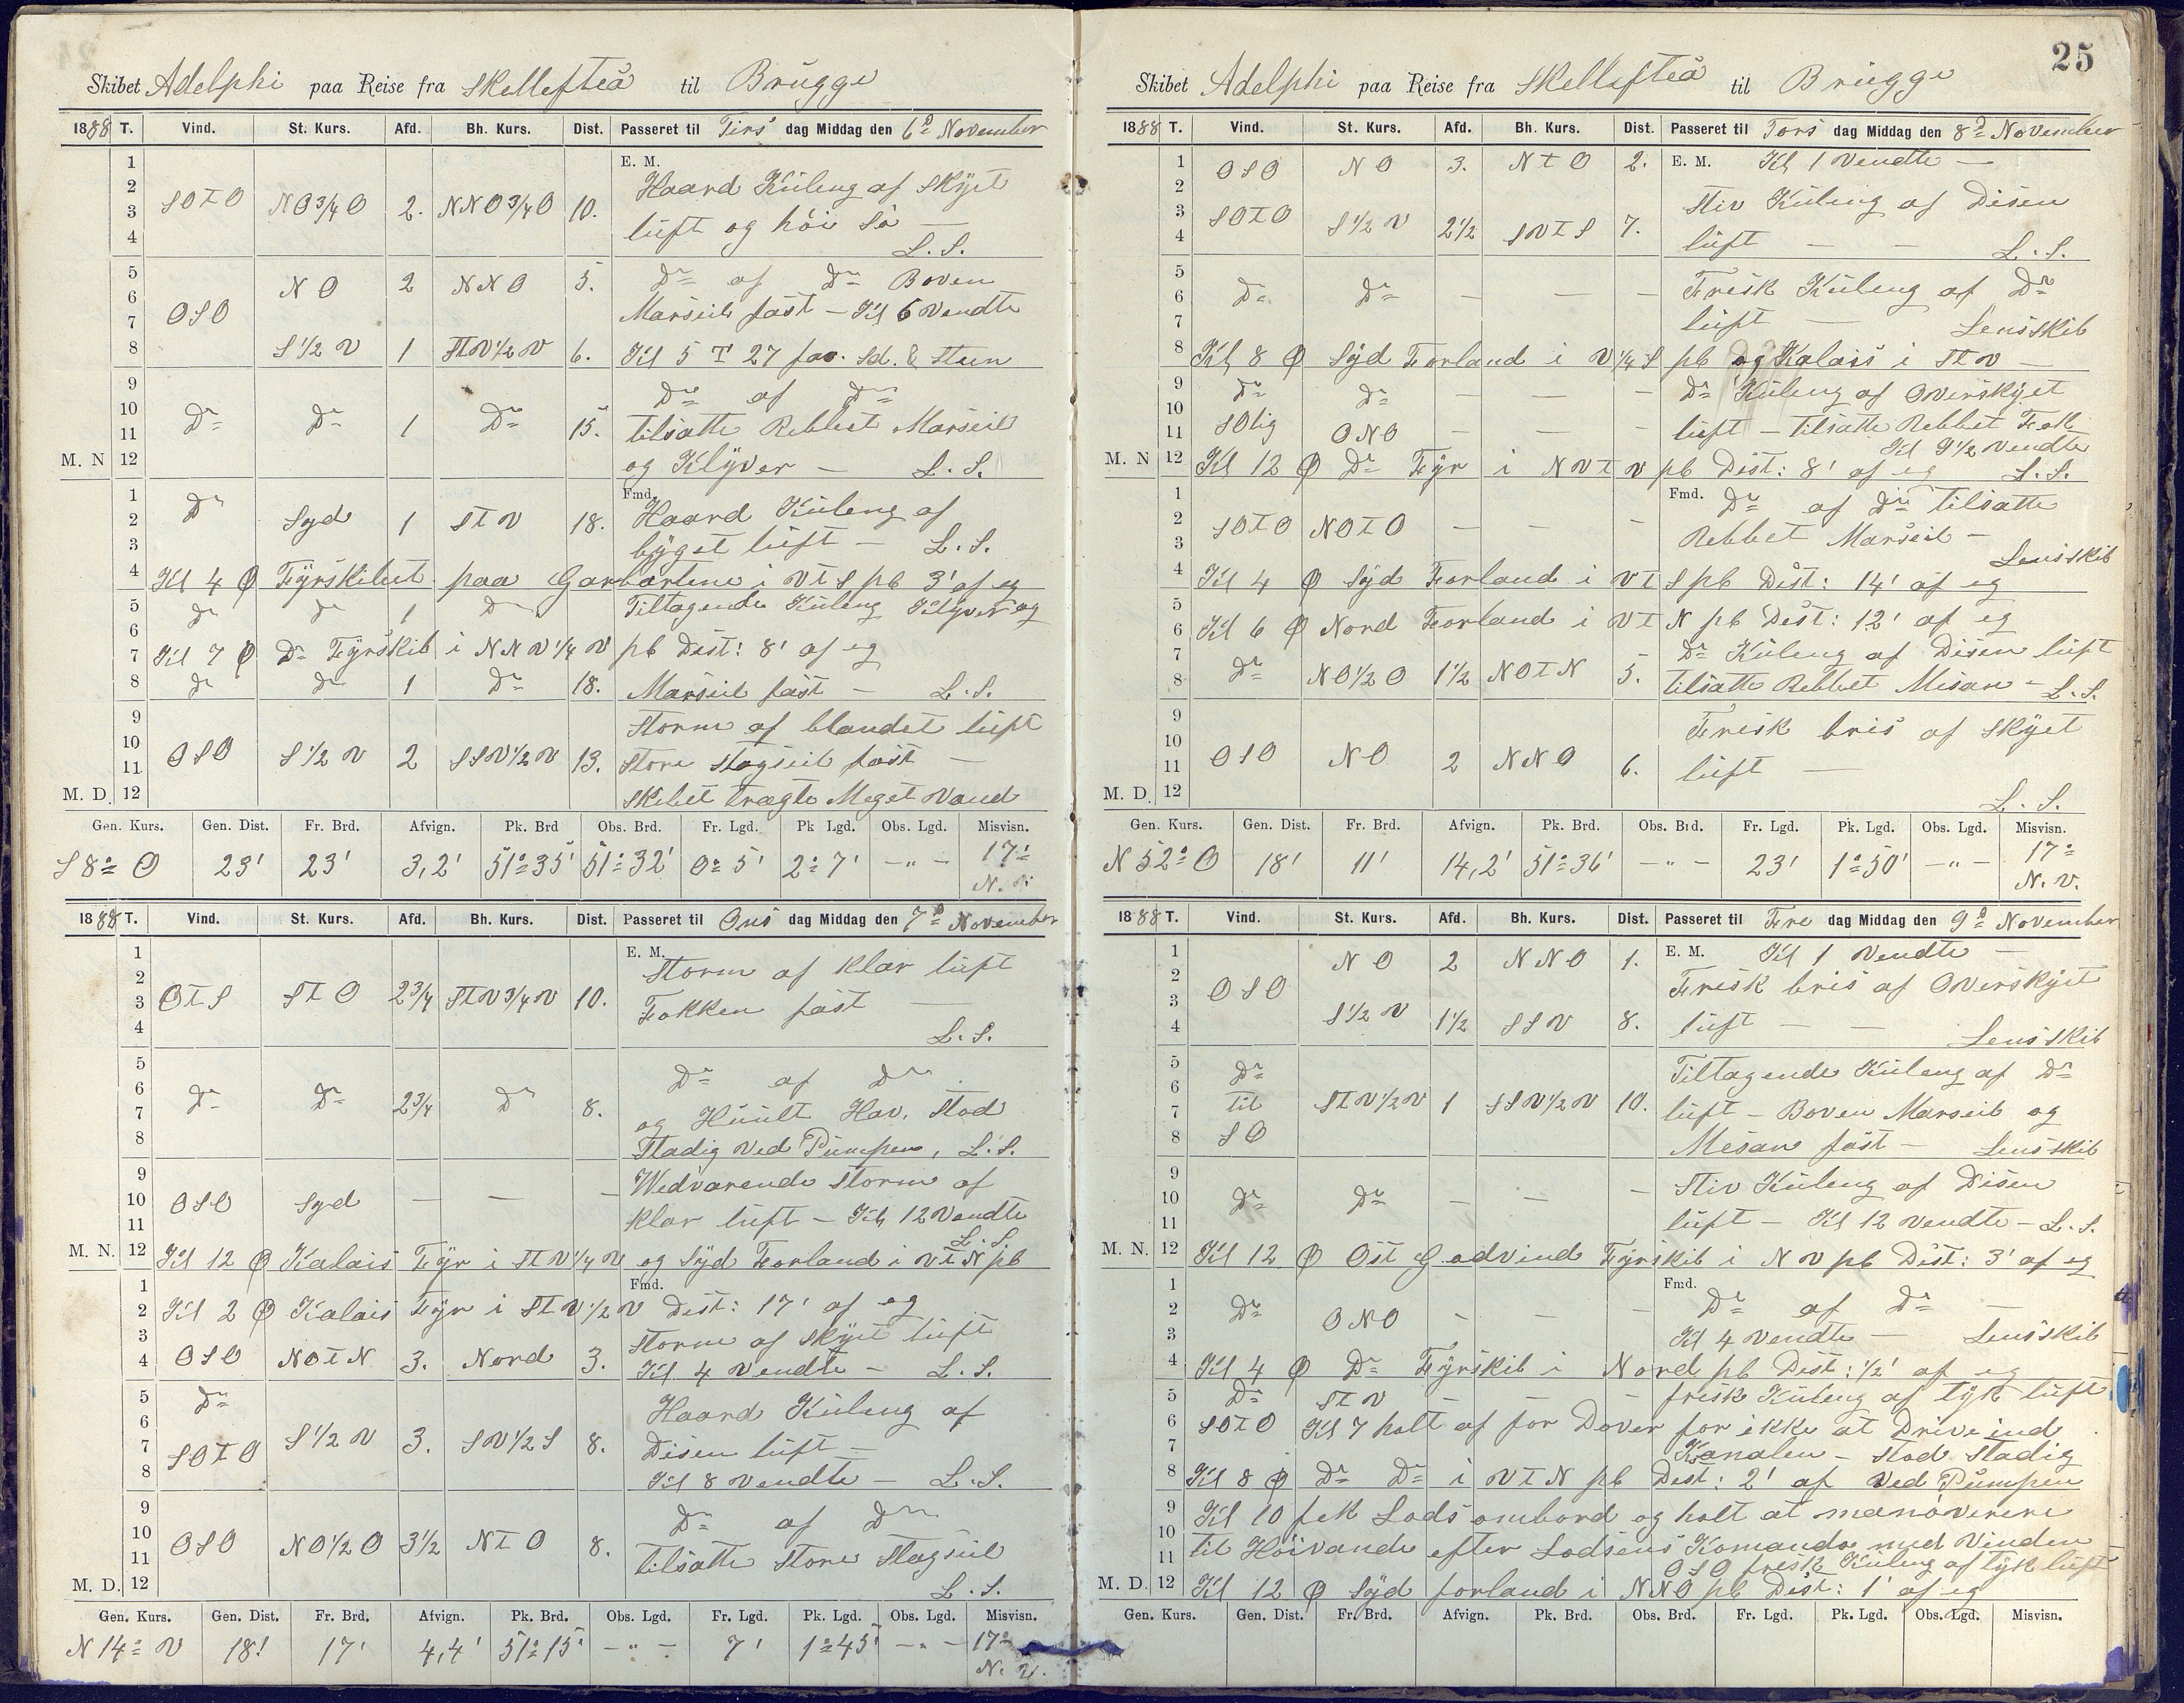 Skibet Adelphi paa Reise fra Skellefteå til Brügge
1888 T. Vind. St. Kurs. Afd. Bh. Kurs. Dist. Passeret til Tirs dag Middag den 6te November
1 E. M.
2 Haard Küling af Skyet
3 SOTO NO3/4O 2. NNO3/4O 10.
4 lüft og höi Sö — L. S.
5 NO 2 NNO 5. Do af Do Boven
6 Marseil fast – Kl 6 Vendte
7 OSO
8 S1/2V 1 STV1/2V 6. Kl 5 T 27 fav. Sd. & Steen
9 Do af Do
10 Do Do 1 Do 15. tilsatte Rebbet Marseil
11
M. N 12 og Klyver – L. S.
1 Fmd.
2 Do Syd 1 STV 18. Haard Küling af
3 byget lüft – L. S.
4 Kl 4 Ø Fyrskibet paa i VTS pb 3' af eg
5 Do Do 1 Do Tiltagende Küling Klyver og
6
7 Kl 7 Ø Do Fyrskib i NNV1/4V pb Dist: 8' af eg
8 Do Do 1 Do 18. Marseil fast – L. S.
9 Storm af blandet lüft
10 OSO S1/2V 2 SSV1/2V 13. Store Stagseil fast —
11
M. D. 12 Skibet trægte Meget Vand
Gen. Kurs. Gen. Dist. Fr. Brd. Afvign. Pk. Brd Obs. Brd. Fr. Lgd. Pk Lgd. Obs. Lgd. Misvisn.
S 8° O 23' 23' 3,2' 51°35' 51°32' 0°5' 2°7' –"– 17° N. V.
1888 T. Vind. St. Kurs. Afd. Bh. Kurs. Dist. Passeret til Ons dag Middag den 7de November
1 E. M.
2 Storm af Klar lüft
3 OTS STO 2 3/4 STV3/4V 10. Fokken fast —
4 L. S.
5 Do af Do
6 Do Do 2 3/4 Do 8.
7 og Hav. Stod
8 Stadig Ved Pümpen, L. S.
9 Wedvarende Storm af
10 OSO Syd — — –
11 Klar lüft – Kl 12 Vendte L. S.
M. N. 12 Kl 12 Ø Kalais Fyr i STV1/4V og Syd Forland i VTN pb
1 Fmd.
2 Kl 2 Ø Kalais Fyr i STV1/2V Dist: 17' af eg
3 Storm af Skyet lüft
4 OSO NOTN 3. Nord 3. Kl 4 Vendte – L. S.
5 Do Haard Küling af
6
7 SOTO S1/2V 3. SV1/2S 8. Disen lüft –
8 Kl 8 Vendte – L. S.
9 Do af Do
10 OSO NO1/2O 3 1/2 NTO 8.
11 tilsatte Store Stagseil
M. D. 12 L. S.
Gen. Kurs. Gen. Dist. Fr. Brd. Afvign. Pk. Brd. Obs. Lgd. Fr. Lgd. Pk. Lgd. Obs. Lgd. Misvisn.
N 14° V 18' 17' 4,4' 51°15' –"– 7' 1°45' –"– 17° N. V.
25
Skibet Adelphi paa Reise fra Skellefteå til Brügge
1888 T. Vind. St. Kurs. Afd. Bh. Kurs. Dist. Passeret til Tors dag Middag den 8de November
1 OSO NO 3. NTO 2. E. M. Kl 1 Vendte —
2 Stiv Küling af Disen
3 SOTO S1/2V 2 1/2 SVTS 7.
4 lüft — — L. S.
5 Frisk Küling af Do
6 Do Do — — —
7 lüft — Lensskib
8 Kl 8 Ø Syd Forland i V1/4S pb og Kalais i STV —
9 Do Do — — — Do Küling af Overskyet
10
11 SOlig ONO — — — lüft – tilsatte Rebbet Fok Kl 9 1/2 Vendte
M. N 12 Kl 12 Ø Do Fyr i NVTV pb Dist: 8' af eg L. S.
1 Fmd. Do af Do tilsatte
2 SOTO NOTO — — –
3 Rebbet Marseil – Lensskib
4 Kl 4 Ø Syd Forland i VTS pb Dist: 14' af eg
5
6 Kl 6 Ø Nord Forland i VTN pb Dist: 12' af eg
7 Do Küling af Disen lüft
8 Do NO1/2O 1 1/2 NOTN 5. tilsatte Rebbet Mesan – L. S.
9 Frisk bris af Skyet
10
11 OSO NO 2 NNO 6. lüft —
M. D. 12 L. S.
Gen. Kurs. Gen. Dist. Fr. Brd. Afvign. Pk. Brd. Obs. Brd. Fr. Lgd. Pk. Lgd. Obs. Lgd. Misvisn.
N 52° O 18' 11' 14,2' 51°36' –"– 23' 1°50' –"– 17° N. V.
1888 T. Vind. St. Kurs. Afd. Bh. Kurs. Dist. Passeret til Fre dag Middag den 9de November
1 NO 2 NNO 1. E. M. Kl 1 Vendte —
2 OSO Frisk bris af Overskyet
3
4 S1/2V 1 1/2 SSV 8. lüft — — Lensskib
5 Do Tiltagende Küling af Do
6 til STV1/2V 1 SSV1/2V 10. lüft – Boven Marseil og
7
8 SO Mesan fast – Lensskib
9 Stiv Küling af Disen
10 Do Do — — –
11 lüft – Kl 12 Vendte – L. S.
M. N. 12 Kl 12 Ø Ost Godvind Fyrskib i NV pb Dist: 3' af eg
1 Fmd.
2 Do ONO – – – Do af Do —
3 Kl 4 Vendte — Lensskib
4 Kl 4 Ø Do Fyrskib i Nord pb Dist: 1/2' af eg
5 Do STV – – – frisk Küling af tyk lüft
6 SOTO Kl 7 holt af for Dover for ikke at Drive ind
7 Kanalen – Stod Stadig
8 Kl 8 Ø Do Do i VTN pb Dist: 2' af Ved Pümpen
9 Kl 10 fek Lods ombord og holt at manöverere
10
11 til Höivande efter Lodsens Komando med Vinden
OSO frisk Küling af tyk lüft
M. D. 12 Kl 12 Ø Syd forland i NNO pb Dist: 1' af eg
Gen. Kurs. Gen. Dist. Fr. Brd. Afvign. Pk. Brd. Obs. Brd. Fr. Lgd. Pk. Lgd. Obs. Lgd. Misvisn.